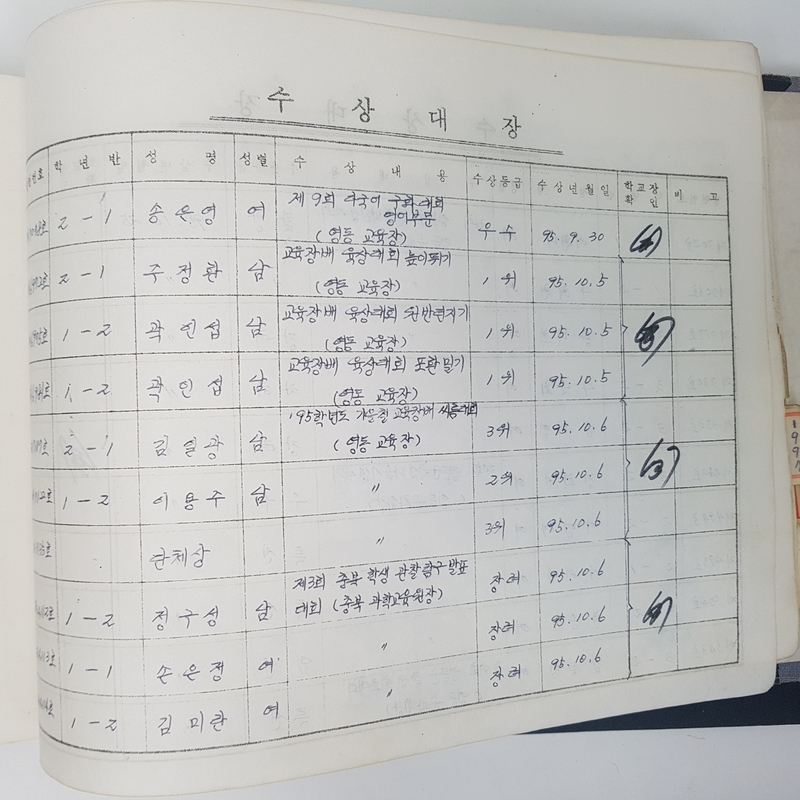 수 상 대 장
학 년 반 성 명 성별 수 상 내 용 수상등급 수상년월일 학교장 확인 비 고
2-1 송은영 여 제9회 외국어 구화대회 영어부문 (영동 교육장) 우수 95. 9. 30
2-1 주정환 남 교육장배 육상대회 높이뛰기 (영동 교육장) 1위 95. 10. 5
1-2 곽인섭 남 교육장배 육상대회 원반던지기 (영동 교육장) 1위 95. 10. 5
1-2 곽인섭 남 교육장배 육상대회 포환밀기 (영동 교육장) 1위 95. 10. 5
2-1 김일광 남 '95학년도 가을철 교육장배 씨름대회 (영동 교육장) 3위 95. 10. 6
1-2 이용주 남 〃 2위 95. 10. 6
단체상 〃 3위 95. 10. 6
1-2 정구성 남 제3회 충북 학생 관찰탐구발표 대회 (충북 과학교육원장) 장려 95. 10. 6
1-1 손은정 여 〃 장려 95. 10. 6
1-2 김미란 여 〃 장려 95. 10. 6